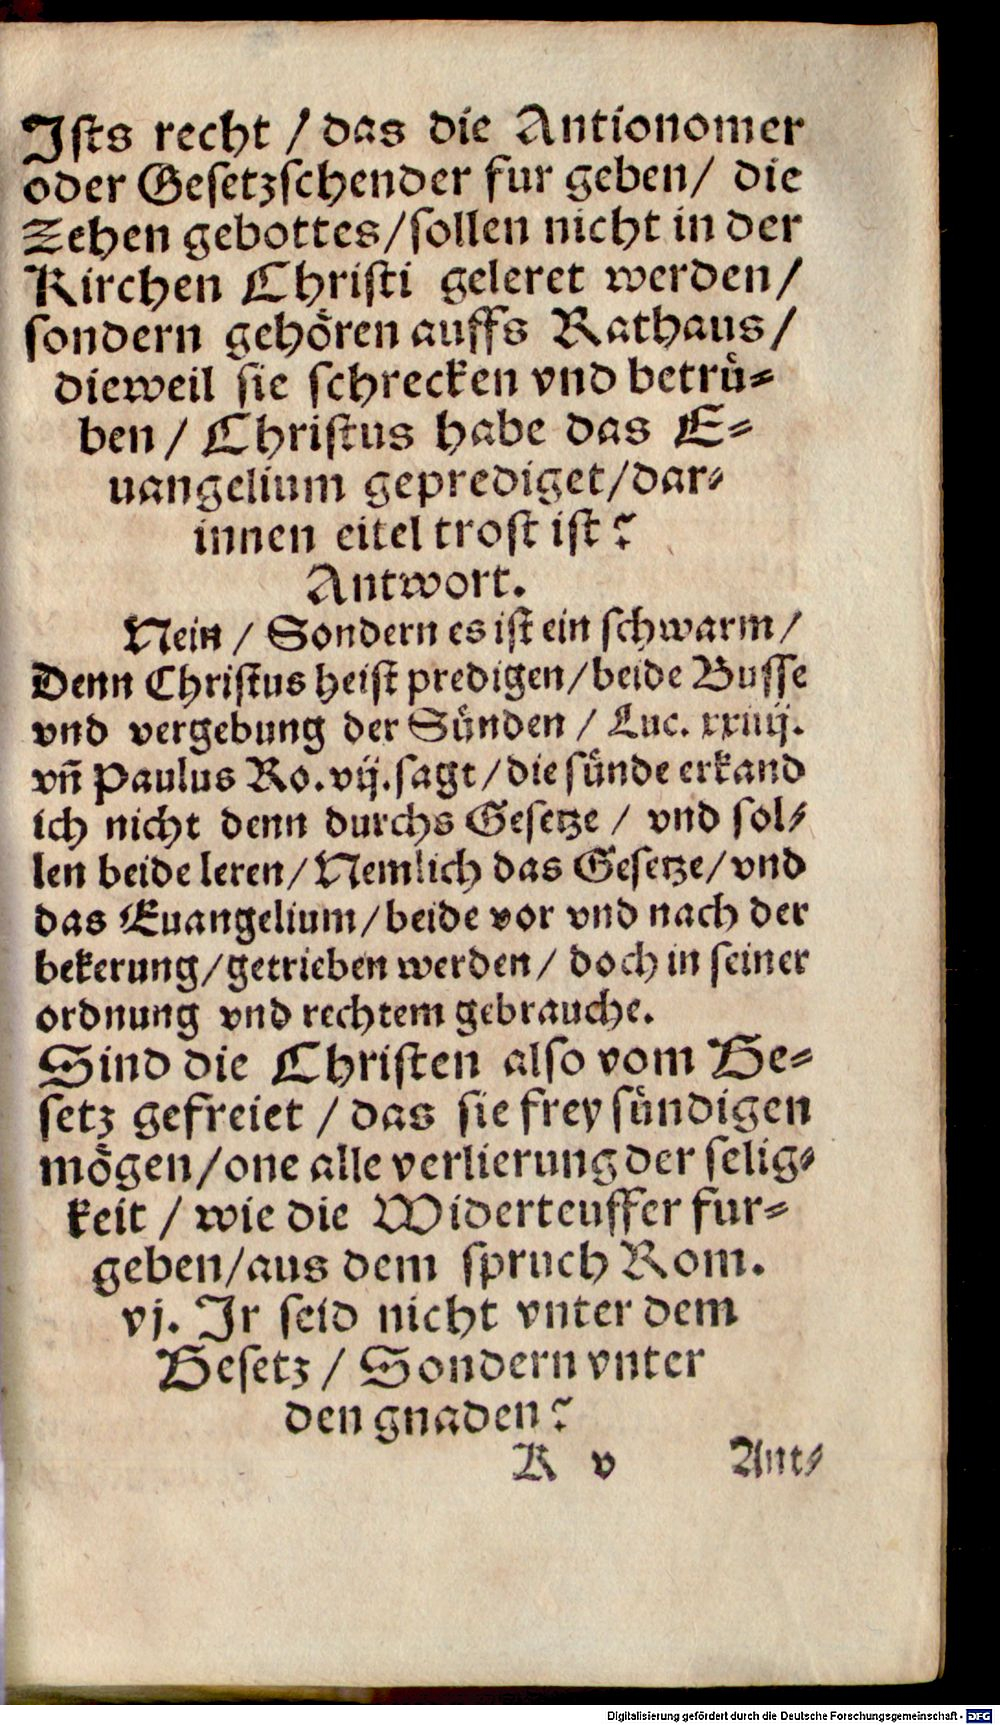 Ists recht / das die Antionomer
oder Gesetzschender fur geben / die
Zehen gebottes / sollen nicht in der
Kirchen Christi geleret werden /
sondern gehören auffs Rathaus /
dieweil sie schrecken vnd betrü-
ben / Christus habe das E-
uangelium geprediget / dar-
innen eitel trost ist?
Antwort.
Nein / Sondern es ist ein schwarm /
Denn Christus heist predigen / beide Busse
vnd vergebung der Sünden / Luc. xxiiij.
vñ Paulus Ro. vij. sagt / die sünde erkand
ich nicht denn durchs Gesetze / vnd sol-
len beide leren / Nemlich das Gesetze / vnd
das Euangelium / beide vor vnd nach der
bekerung / getrieben werden / doch in seiner
ordnung vnd rechtem gebrauche.
Sind die Christen also vom Ge-
setz gefreiet / das sie frey sündigen
mögen / one alle verlierung der selig-
keit / wie die Widerteuffer fur-
geben / aus dem spruch Rom.
vj. Ir seid nicht vnter dem
Gesetz / Sondern vnter
den gnaden?
K v Ant-
Digitalisierung gefördert durch die Deutsche Forschungsgemeinschaft - DFG